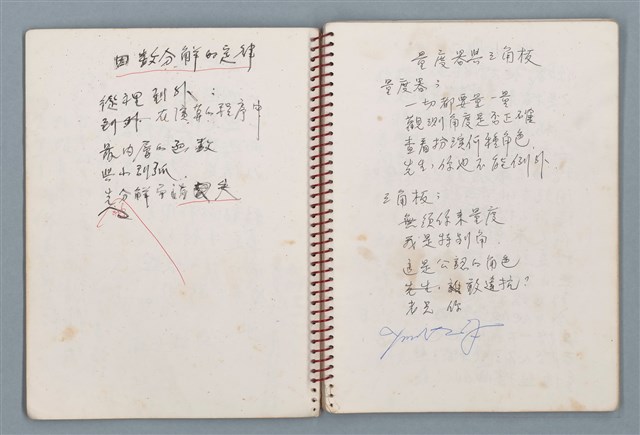 因數分解的定律
從裡到外；
到外 在演算的程序中
最內層的函數
與小刮弧
先分解
量度器與三角板
量度器：
一切都要量一量
觀測角度是否正確
查看扮演何種角色
先生，你也不能例外
三角板：
無須你來量度
我是特別角
這是公認的角色
先生，誰敢違抗？
老兄 你